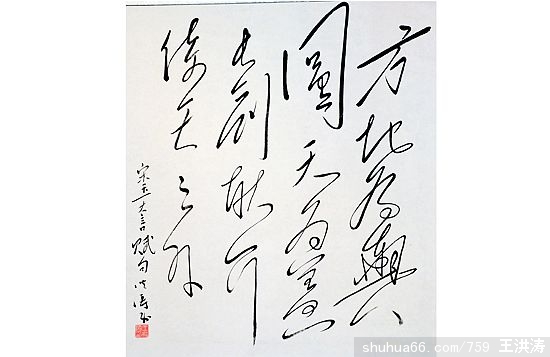 方地为輿
圓天为蓋
长剑耿介
倚天之外
宋玉大言賦句 洪涛书
shuhua66.com/759 王洪涛